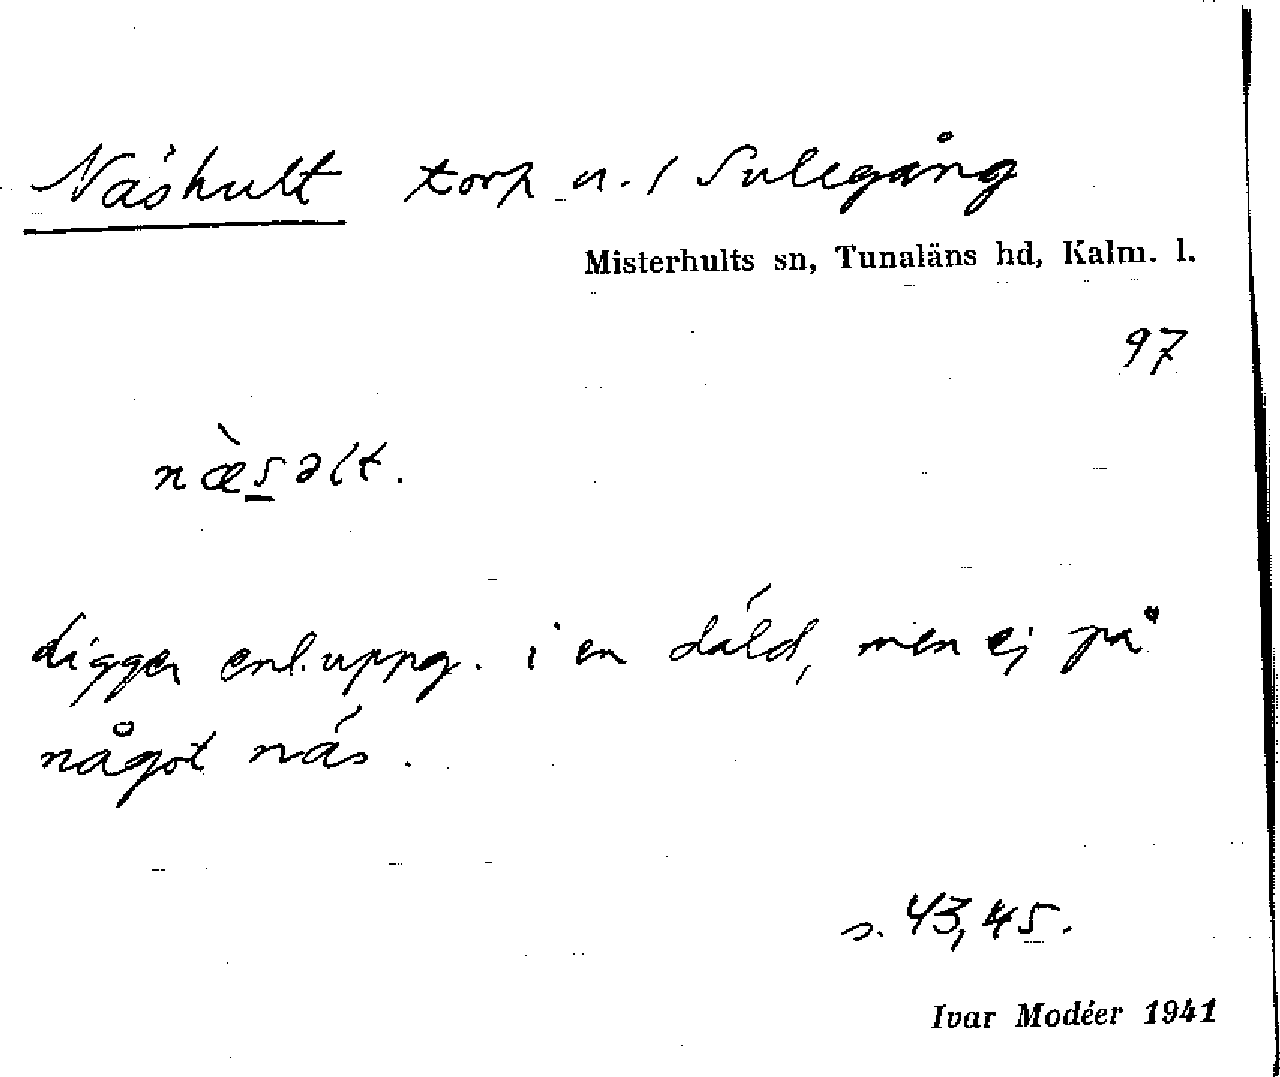 Näshult torp u. / Sulegång
Misterhults sn, Tunaläns hd, Kalm. l.
97
næ̀s̲əlt.
Ligger enl. uppg. i en däld, men ej på
något näs.
s. 43, 45.
Ivar Modéer 1941